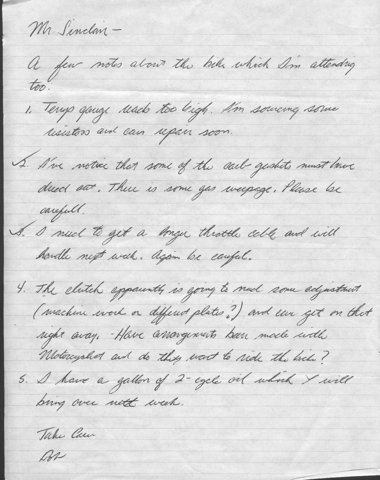 Mr Sinclair -
A few notes about the bike which I'm attending
too.
1. Temp gauge reads too high. I'm sourcing some
resistors and can repair soon.
2. I've notice that some of the carb gaskets must have
dried out. There is some gas weepage. Please be
carefull.
3. I need to get a longer throttle cable and will
handle next week. Again be careful.
4. The clutch apparently is going to need some adjustment
(machine work or different plates?) and can get on that
right away. Have arrangements been made with
Motorcyclist and do they want to ride the bike?
5. I have a gallon of 2-cycle oil which I will
bring over next week.
Take Care